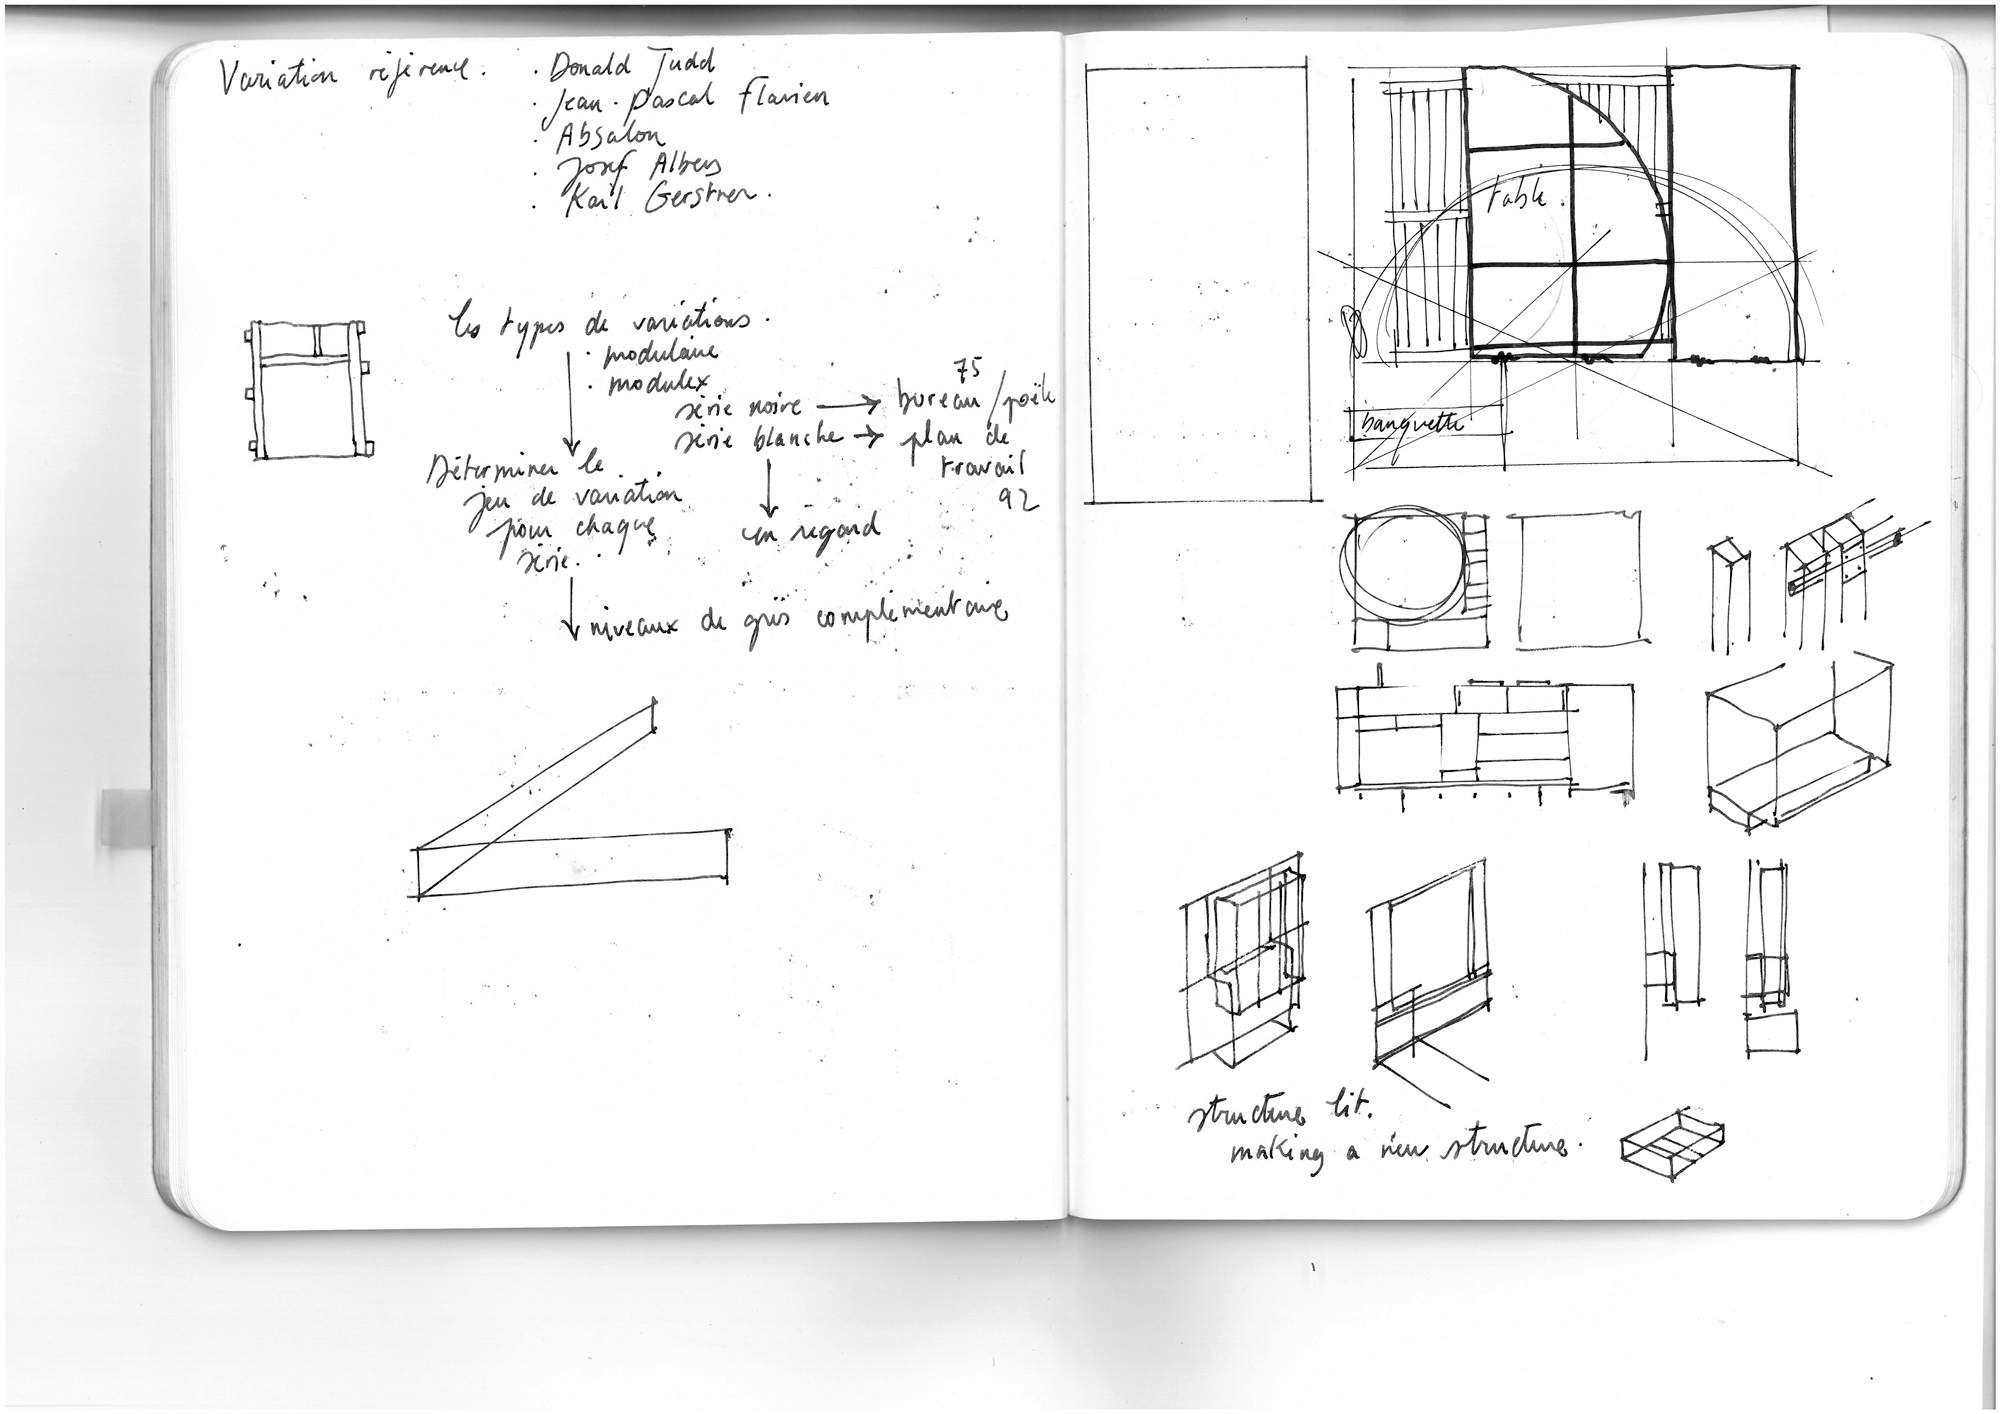 Variation référence.
. Donald Judd
. Jean-Pascal Flavien
. Absalon
. Josef Albers
. Karl Gerstner.
les types de variations.
. modulaire
. modulex
75
série noire → bureau / poële
série blanche → plan de
travail
92
Déterminer le
jeu de variation
pour chaque
série.
un regard
niveaux de gris complémentaire
table.
banquette
structure lit.
making a new structure.